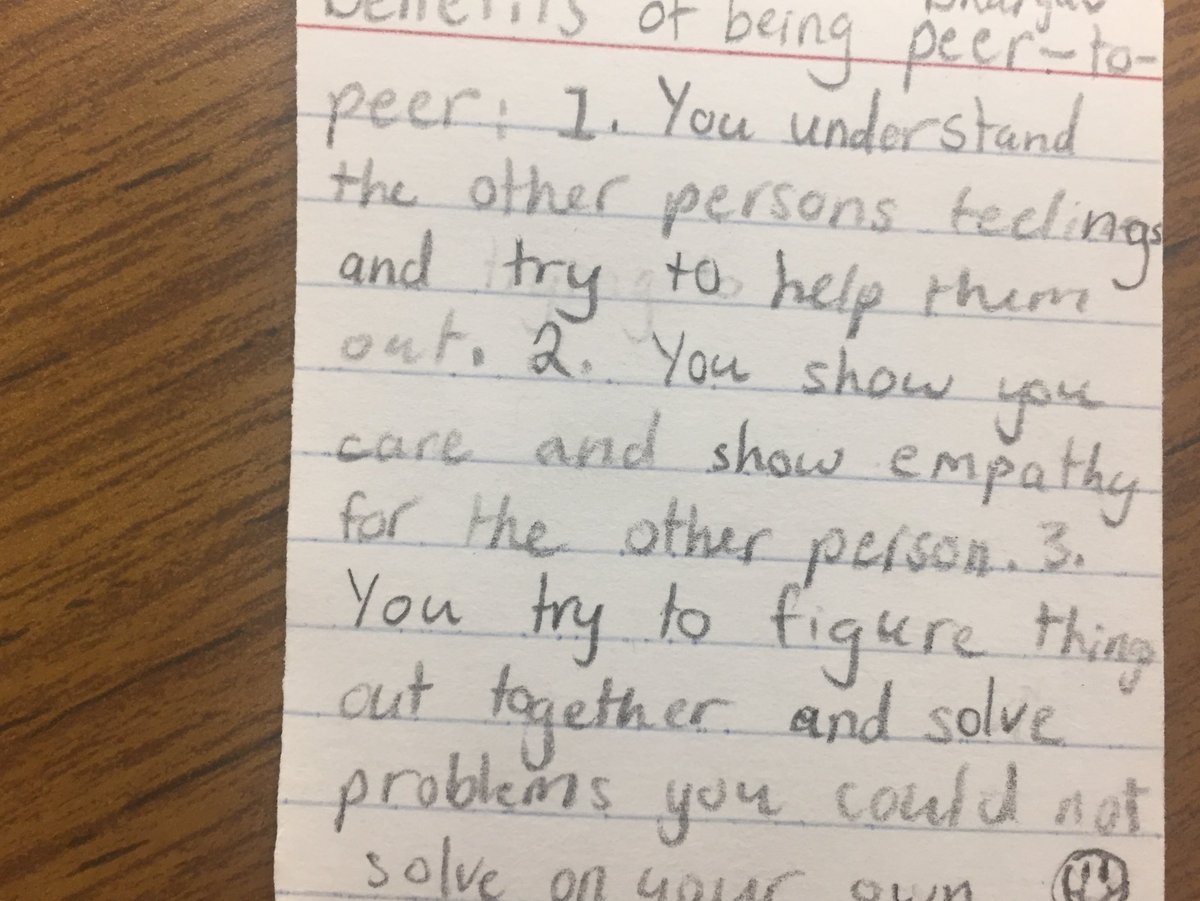 Benefits of being peer-to-
peer: 1. You understand
the other persons feelings
and try to help them
out. 2. You show you
care and show empathy
for the other person. 3.
You try to figure thing
out together and solve
problems you could not
solve on your own